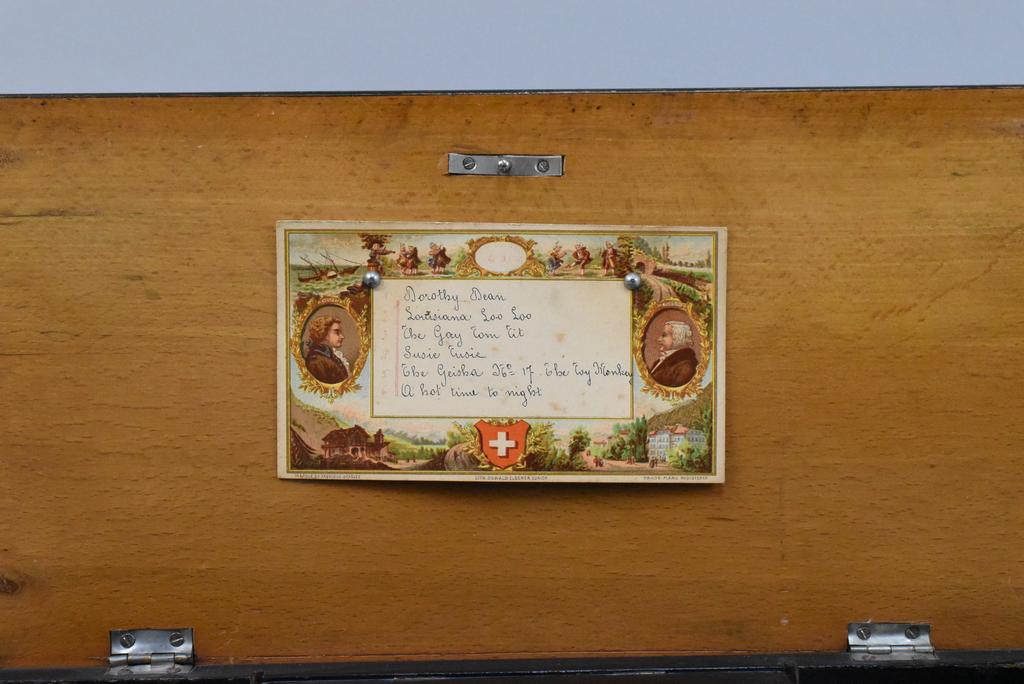 Dorothy Dean
Louisiana Loo Loo
The Gay Tom Tit
Susie Tusie
The Geisha No 17 The Toy Monkey
A hot time to night
LITH. OSWALD ZURICH
TRADE MARK REGISTERED